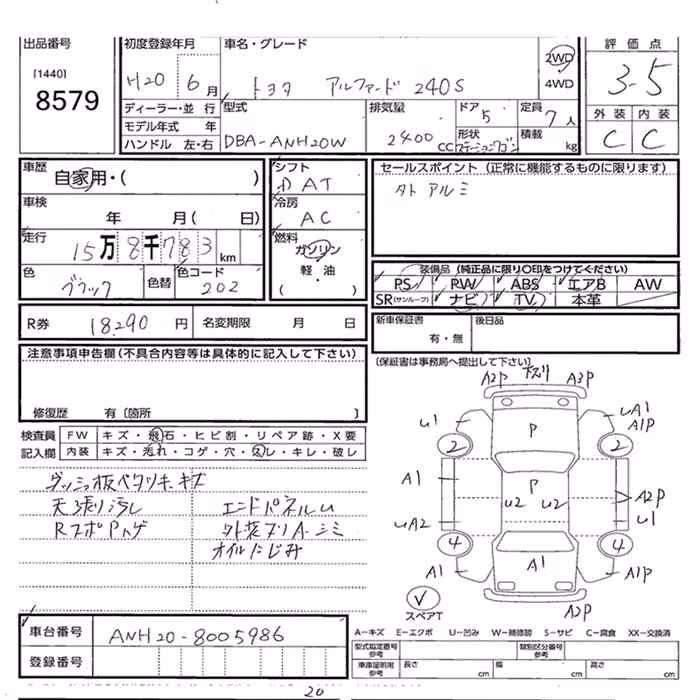 出品番号
[1440]
8579
初度登録年月
H20 6月
車名・グレード
トヨタ アルファード 240S
2WD
4WD
評価点
3.5
外装 内装
C C
ディーラー・並行
モデル年式 年
ハンドル 左・右
型式
DBA-ANH20W
排気量
2400 CC
ドア
5
形状
ステーションワゴン
定員
7人
積載
kg
車歴
自家用・( )
車検
年 月( 日)
走行
15万8千783km
色
ブラック
色替
色コード
202
シフト
DAT
冷房
AC
燃料
ガソリン
軽・油
( )
セールスポイント (正常に機能するものに限ります)
タト アルミ
装備品 (純正品に限り〇印をつけてください)
PS RW ABS エアB AW
SR(サンルーフ) ナビ TV 本革
R券 18290円 名変期限 月 日
新車保証書
有・無
後日品
(保証書は事務局へ提出して下さい)
注意事項申告欄(不具合内容等は具体的に記入して下さい)
修復歴 有〔箇所 〕
検査員
記入欄
FW キズ・飛石・ヒビ割・リペア跡・X要
内装 キズ・汚れ・コゲ・穴・スレ・キレ・破レ
ダッシュ板ベタツキ、キズ
天張り汚レ
RスポPハゲ
エンドパネルU
外装ブリA-シミ
オイルにじみ
A2P 下ズリ A3P
U1 P UA1
A1P
2 2
A1 P A2P
U2 U2
UA2 U1
4 4
A1 A1 A1P
A2P
スペアT
A-キズ E-エクボ U-凹み W-補修跡 S-サビ C-腐食 XX-交換済
車台番号 ANH20-8005986
登録番号
型式指定番号
参考
類別区分番号
参考
車庫証明用
参考
長さ cm 幅 cm 高さ cm
20